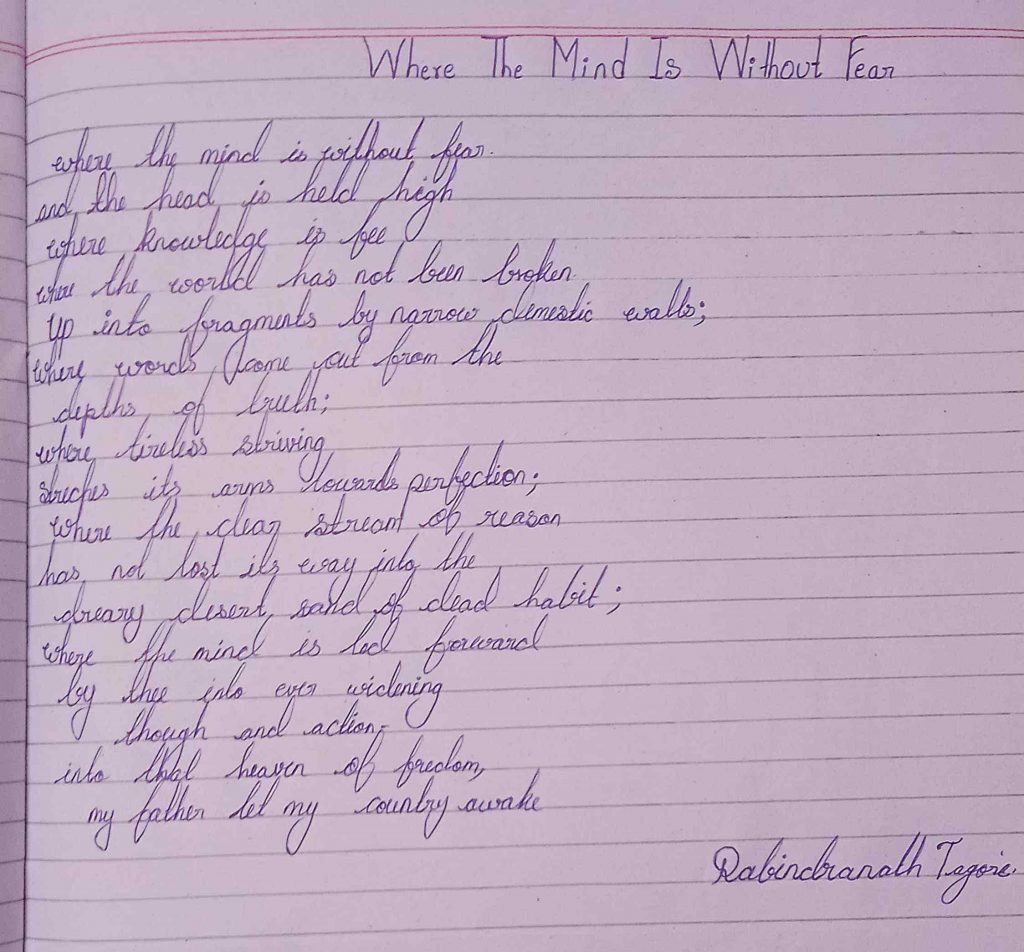 Where The Mind Is Without Fear
where the mind is without fear.
and the head is held high
where knowledge is fee
where the world has not been broken
up into fragments by narrow demestic walls;
where words come out from the
depths of truth;
where tireless striving
streches its arms towards perfection;
where the clear stream of reason
has not lost its way into the
dreary desert sand of dead habit;
where the mind is led forward
by thee into ever widening
though and action,
into that heaven of fredom,
my father let my country awake
Rabindranath Tagore.